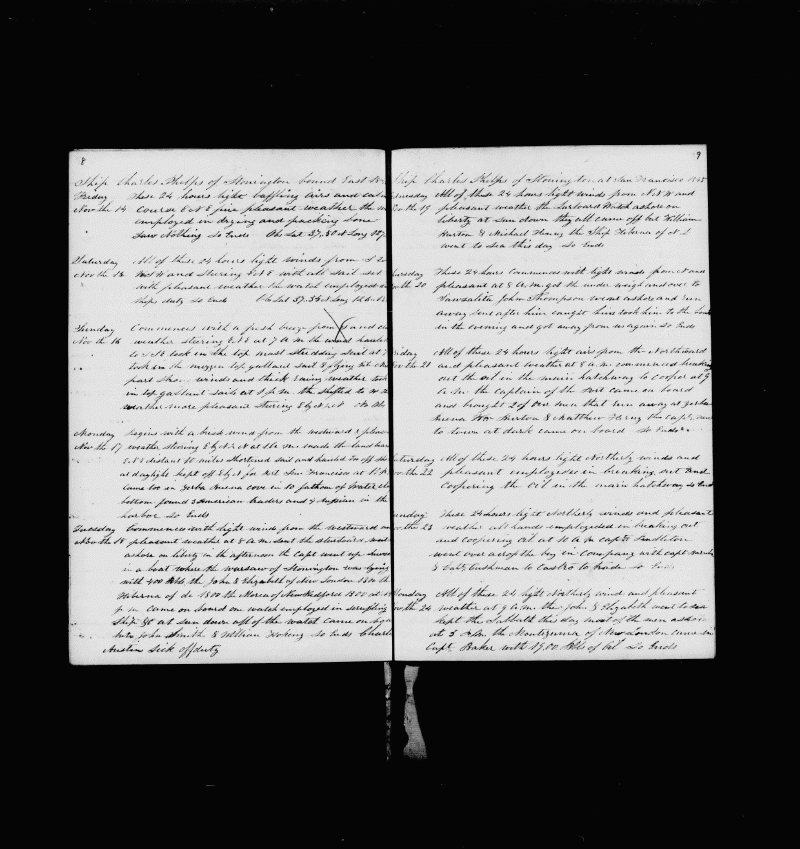 8
Ship Charles Phelps of Stonington bound East
Friday These 24 hours light baffling airs and calm
Nov the 14 course E N E fine pleasant weather the
employed in drying and packing bone
Saw Nothing So Ends Obs Lat 37.30 N Long
Saturday All of these 24 hours light winds from S
Nov the 15 and Stering E N E with all sail set
with pleasant weather the watch employed
ships duty So Ends Obs Lat 37.35 N Long 126
Sunday Commences with a fresh breeze from and
Nov the 16 weather stering E N E at 7 A m the wind
to took in the top mast studding sail at
took in the mizzen top gallant sail & flying
part winds and thick rainy weather took
in top gallant sails at P.m. the shifted to
weather more pleasant stering E by N No Obs
Monday begins with a brisk wind from the westward &
Nov the 17 weather stering E by N at A m made the land
E N E distant 50 miles shortened sail and hauled off
at daylight kept off E by for Port San Francisco at P.m
came too in Yerba Buena cove in 10 fathom of water
bottom found 3 American traders and 4 Russian in the
harbor So Ends
Tuesday Commences with light wind from the westward
Nov the 18 pleasant weather at 8 A m sent the starboard
ashore on liberty in the afternoon the Capt went up
in a boat where the warsaw of Stonington was lying
with 400 bbls the John & Elizabeth of New London 1800
Hibernia of do 1800 the Morea of New Bedford 1800 at
p m came on board on watch employed in
Ship &c at sun down all of the watch came on
but John Smith & William So Ends Charles
Austin Sick off duty
9
Ship Charles Phelps of Stonington at San Francisco 1845
Wednesday All of these 24 hours light winds from N N W and
Nov the 19 pleasant weather the Larboard Watch ashore on
liberty at sun down they all came off but William
Burton & Michael Henry the Ship Hibernia of N L
went to sea this day So Ends
Thursday These 24 hours Commences with light winds from N and
Nov the 20 pleasant at 8 A.m. got the under weigh and over to
Sawsalita John Thompson went ashore and run
away sent after him caught him took him to the boat
in the evening and got away from us again So Ends
Friday All of these 24 hours light airs from the Northward
Nov the 21 and pleasant weather at 8 a.m. commenced breaking
out the oil in the main hatchway to cooper at 9
A.m. the captain of the Port came on board
and brought 2 of our men that run away at Yerba
Buena Wm Burton & Matthew Henry the Capt
to town at dark came on board So Ends
Saturday All of these 24 hours light Northerly winds and
Nov the 22 pleasant employeded in breaking out and
Coopering the Oil in the main hatchway So Ends
Sunday These 24 hours light Northerly winds and pleasant
Nov the 23 weather all hands employeded in breaking out
and coopering oil at 10 A m capt Pendleton
went over across the bay in company with capt
& Capt Cushman to Castro to trade So Ends
Monday All of these 24 light Northerly wind and pleasant
Nov the 24 weather at 9 A.m. the John & Elizabeth went to sea
kept the Sabbath this day most of the men ashore
at 5 P.m. the Montezuma of New London came in
Capt Baker with 1900 bbls of oil So Ends